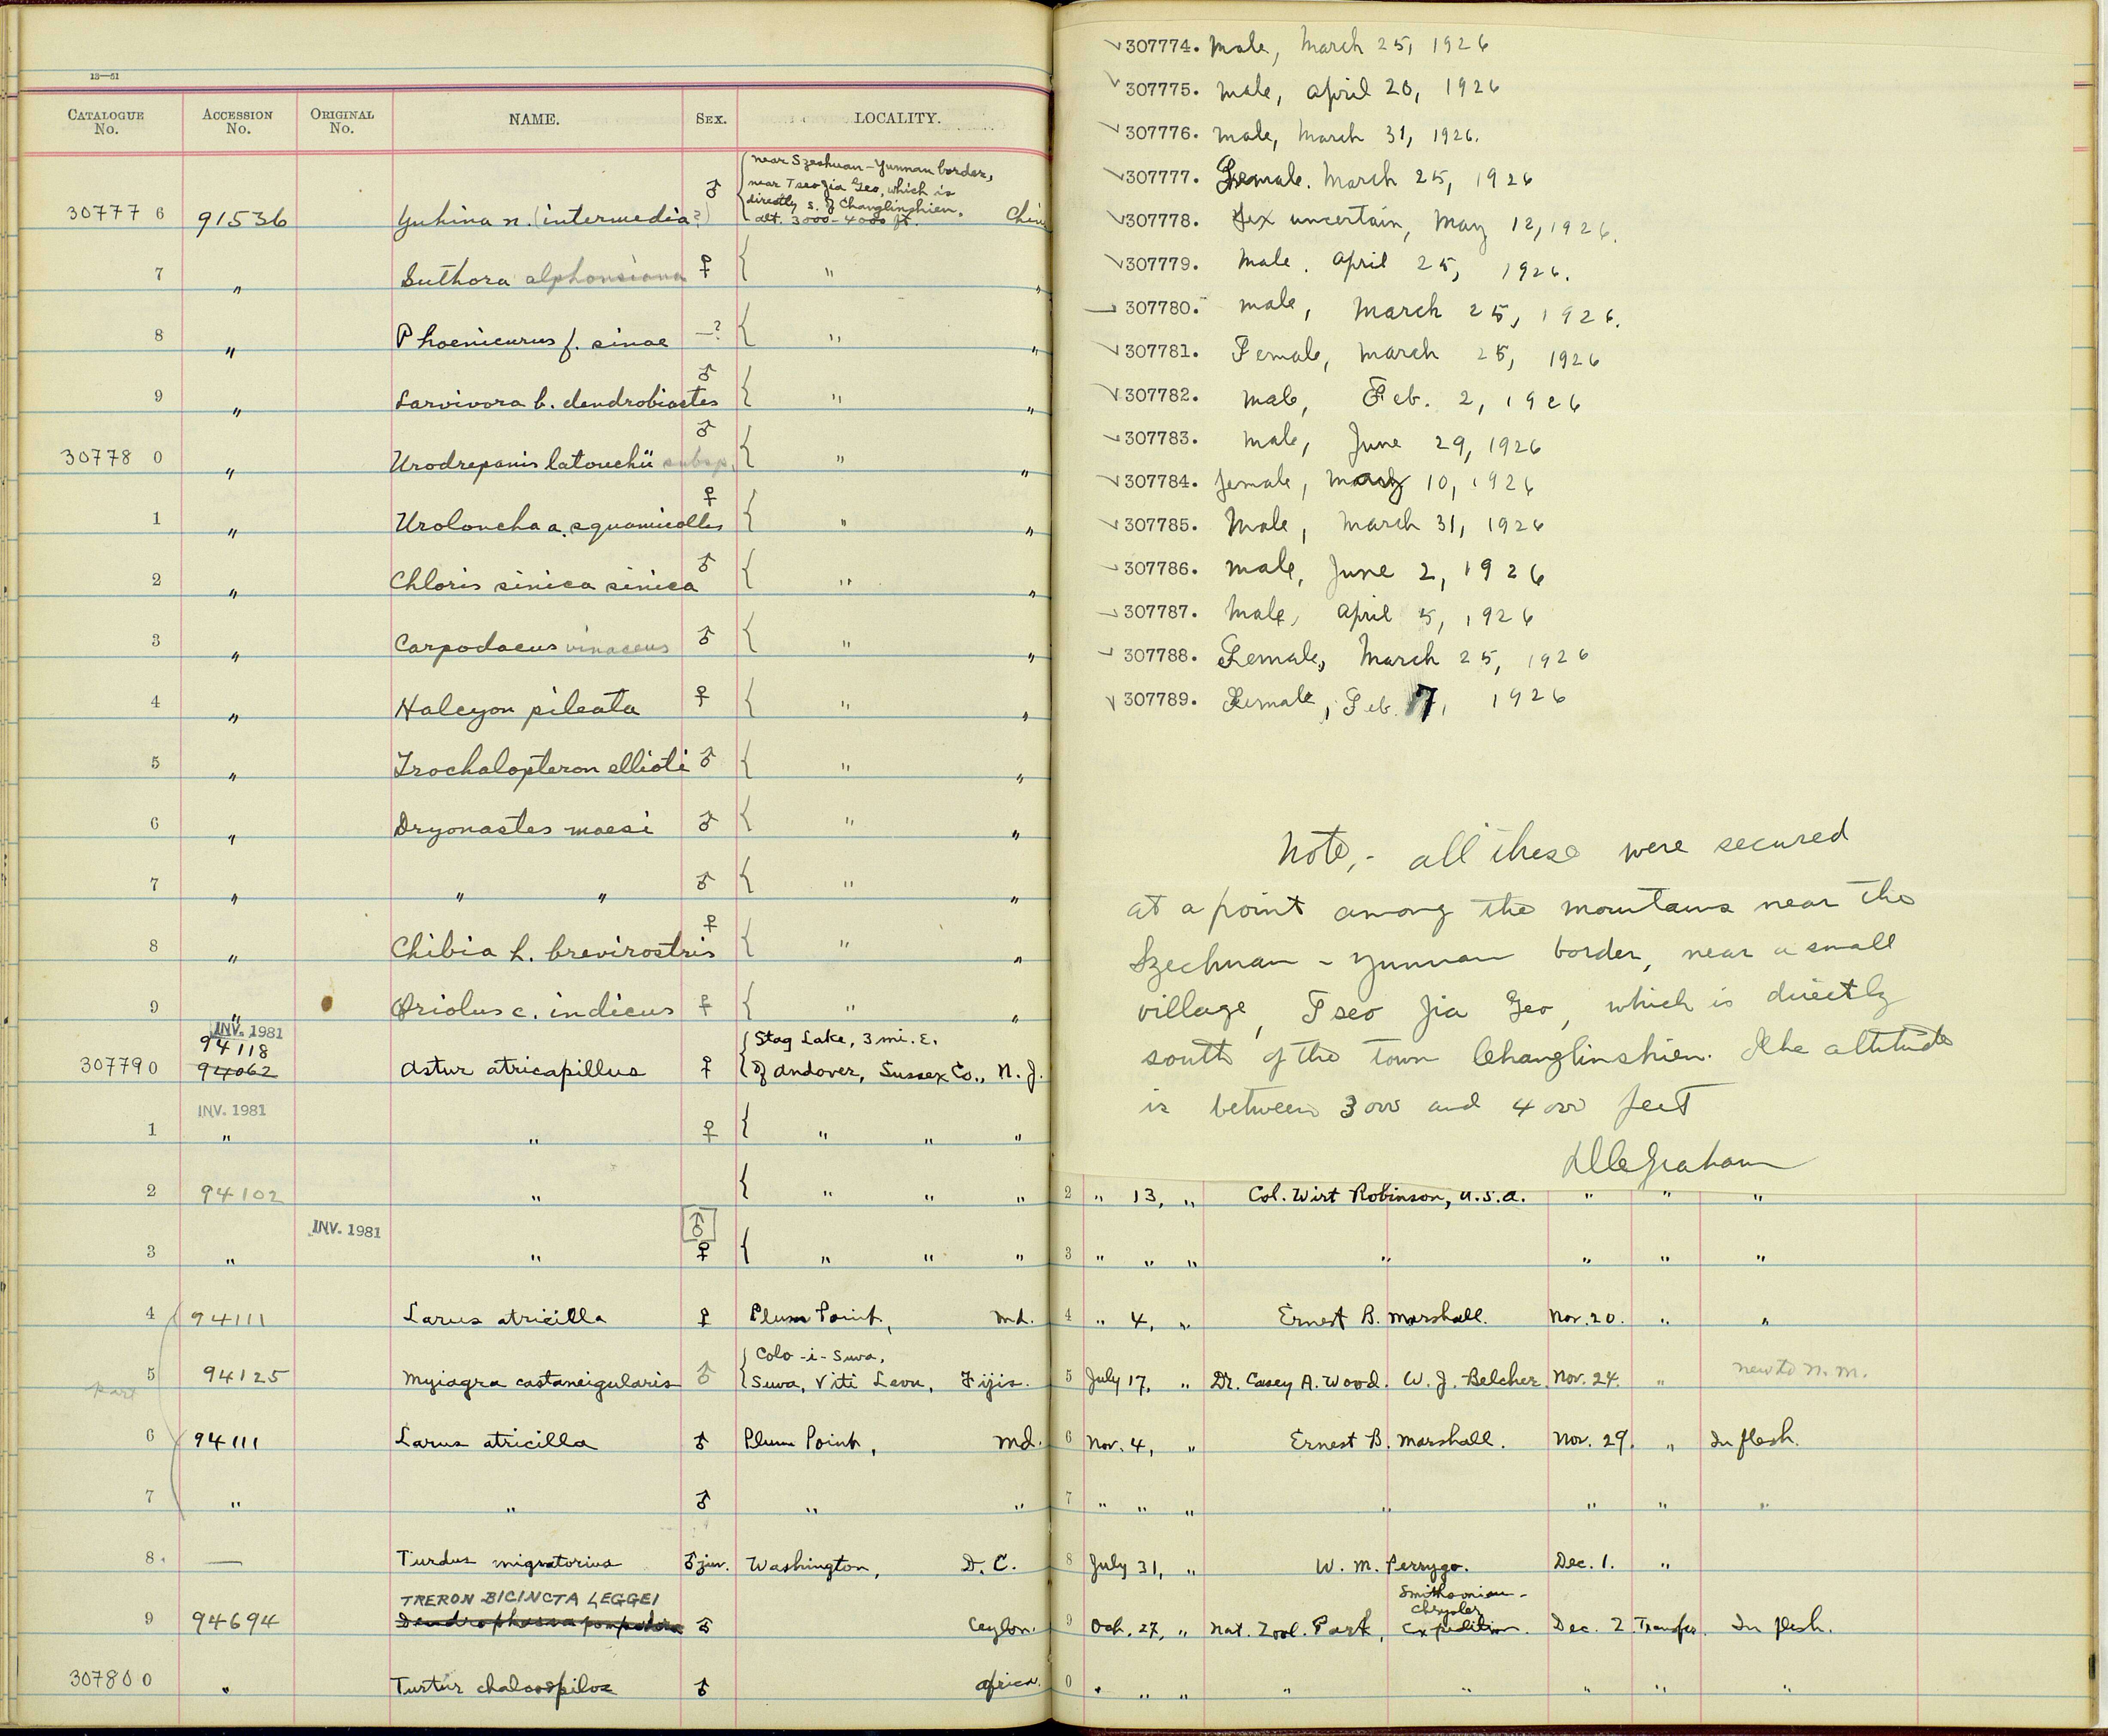 13—51
CATALOGUE No. ACCESSION No. ORIGINAL No. NAME. SEX. LOCALITY.
near Szechuan-Yunnan border,
near Tseo Jia Geo, which is
directly s. of Changlinshien.
30777 6 91536 Yuhina n. (intermedia?) ♂ alt. 3000-4000 ft. China
7 " Suthora alphonsiana ♀ { " "
8 " Phoenicurus f. sinae —? { " "
9 " Larvivora b. dendrobiastes ♂ { " "
30778 0 " Urodrepanis latouchii subsp. ♂ { " "
1 " Uroloncha a. squamicollis ♀ { " "
2 " Chloris sinica sinica ♂ { " "
3 " Carpodacus vinaceus ♂ { " "
4 " Halcyon pileata ♀ { " "
5 " Trochalopteron ellioti ♂ { " "
6 " Dryonastes maesi ♂ { " "
7 " " " ♂ { " "
8 " Chibia h. brevirostris ♀ { " "
9 " Oriolus c. indicus ♀ { " "
INV. 1981
94118 Stag Lake, 3 mi. E.
30779 0 94062 Astur atricapillus ♀ { of Andover, Sussex Co., N. J.
INV. 1981
1 " " ♀ { " " "
2 94102 " { " " "
INV. 1981 ♂
3 " " ♀ { " " "
4 94111 Larus atricilla ♀ Plum Point, Md.
Colo-i-Suva,
5 94125 Myiagra castaneigularis ♂ { Suva, Viti Levu, Fijis.
part
6 94111 Larus atricilla ♂ Plum Point, Md.
7 " " ♂ " "
8. — Turdus migratorius ♂ juv. Washington, D. C.
TRERON BICINCTA LEGGEI
9 94694 Dendrophassa pompadora ♂ Ceylon.
30780 0 " Turtur chalcospilos ♂ Africa.
307774. Male, March 25, 1926
307775. Male, April 20, 1926
307776. Male, March 31, 1926.
307777. Female. March 25, 1926
307778. Sex uncertain, May 12, 1926.
307779. Male. April 25, 1926.
307780. Male, March 25, 1926.
307781. Female, March 25, 1926
307782. Male, Feb. 2, 1926
307783. Male, June 29, 1926
307784. female, May 10, 1926
307785. Male, March 31, 1926
307786. Male, June 2, 1926
307787. Male, April 5, 1926
307788. Female, March 25, 1926
307789. Female, Feb. 7, 1926
Note,- all these were secured
at a point among the mountains near the
Szechuan - Yunnan border, near a small
village, Tseo Jia Geo, which is directly
south of the town Changlinshien. The altitude
is between 3000 and 4000 feet
D C Graham
2 " 13, " Col. Wirt Robinson, U.S.A. " " "
3 " " " " " " "
4 " 4, " Ernest B. Marshall. Nov. 20. " "
5 July 17, " Dr. Casey A. Wood. W. J. Belcher. Nov. 24. " new to N. M.
6 Nov. 4, " Ernest B. Marshall. Nov. 29. " In flesh.
7 " " " " " " "
8 July 31, " W. M. Perrygo. Dec. 1. "
Smithsonian-
Chrysler
9 Oct. 27, " Nat. Zool. Park, Expedition. Dec. 2 Transfer. In flesh.
0 " " " " " " " "